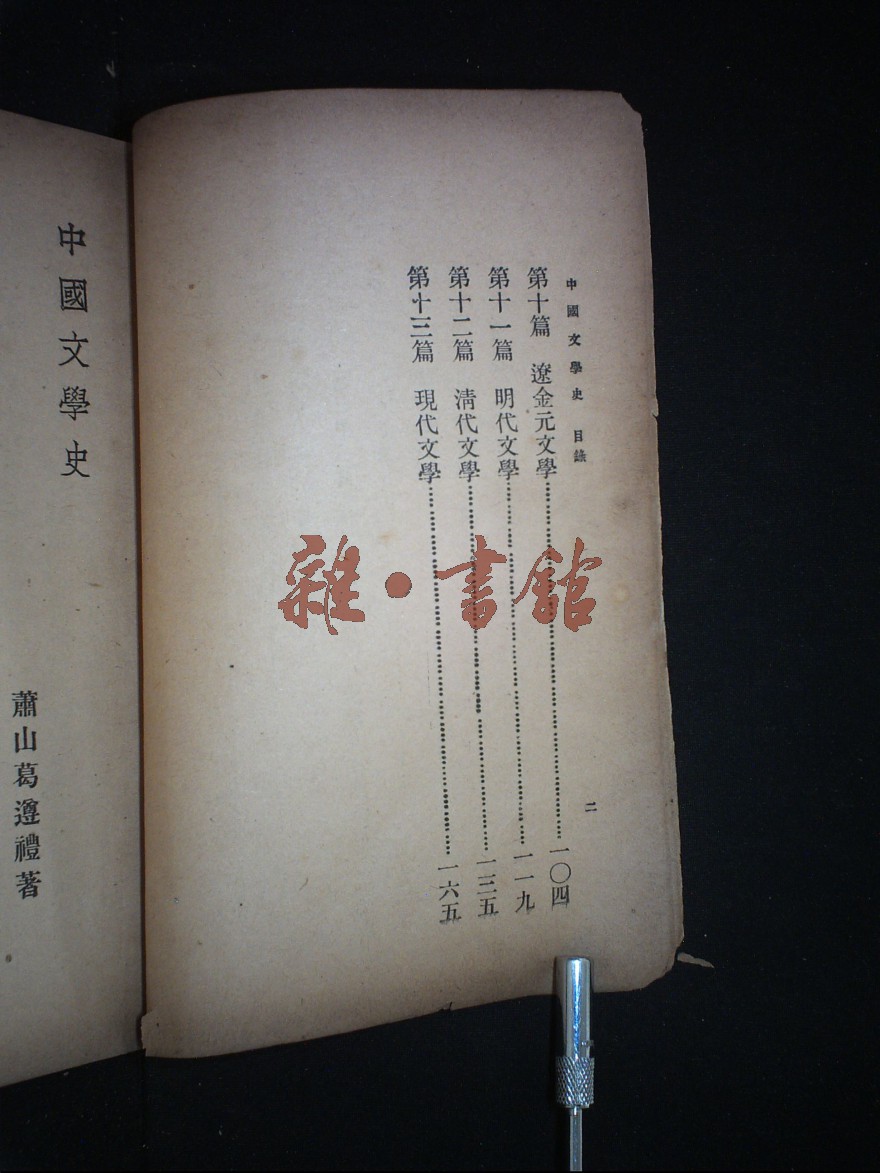 中國文學史　目錄
二
第十篇　遼金元文學……一〇四
第十一篇　明代文學……一一九
第十二篇　淸代文學……一三五
第十三篇　現代文學……一六五
中國文學史
蕭山葛遵禮著
雜·書館